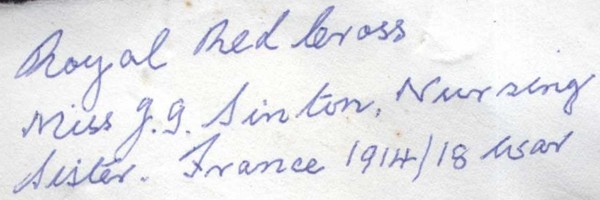 Royal Red Cross
Miss J.J. Sinton, Nursing
Sister. France 1914/18 war